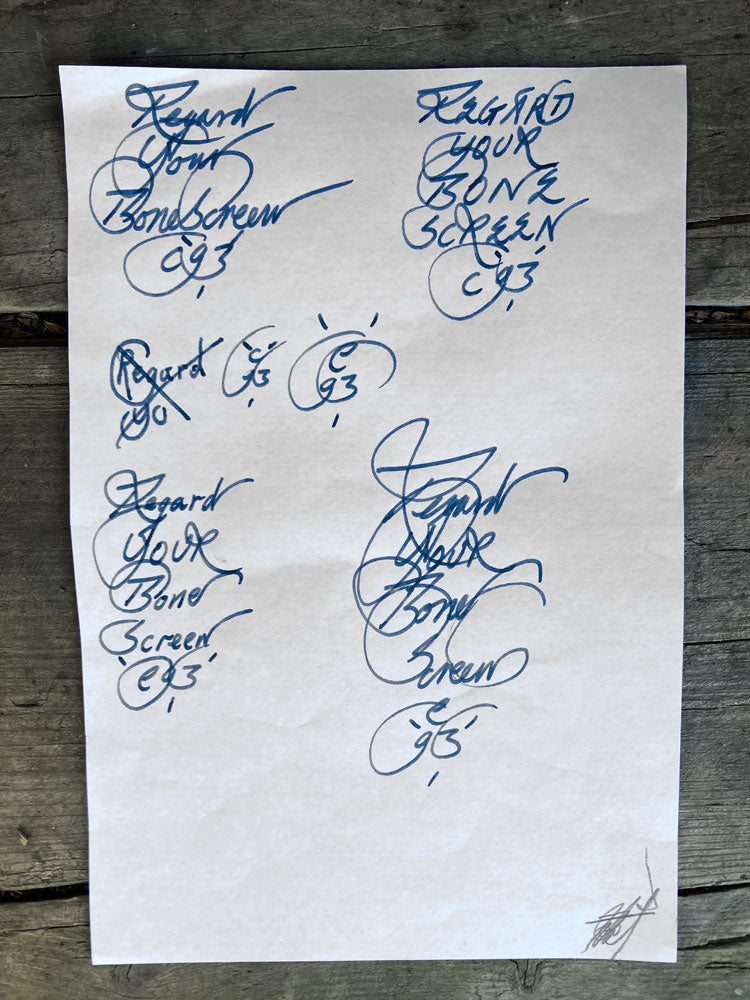 Regard
Your
BoneScreen
c'93
REGARD
YOUR
BONE
SCREEN
c'93
Regard
YO
c
93
e
93
Regard
YOUR
Bone
Screen
e93
Regard
YOUR
Bone
Screen
e
93